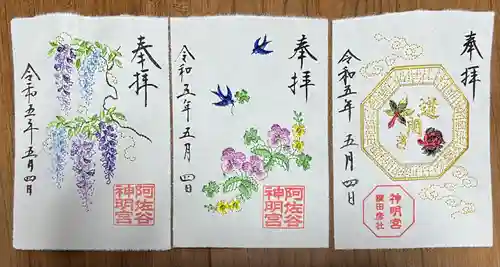 奉拝
令和五年五月四日
阿佐谷
神明宮
奉拝
令和五年五月四日
阿佐谷
神明宮
奉拝
令和五年五月四日
神明宮